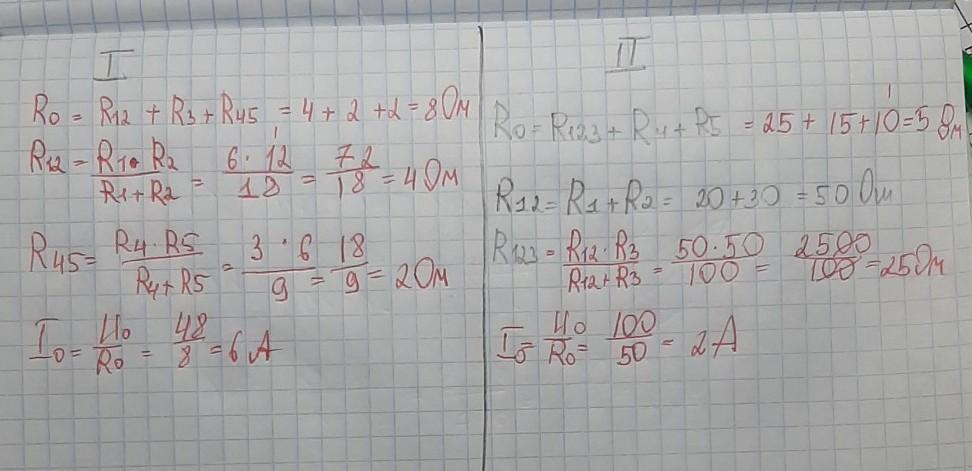 I
R0 = R12 + R3 + R45 = 4 + 2 + 2 = 8 Ом
R12 = R1 · R2 / R1 + R2 = 6 · 12 / 18 = 72 / 18 = 4 Ом
R45 = R4 · R5 / R4 + R5 = 3 · 6 / 9 = 18 / 9 = 2 Ом
I0 = U0 / R0 = 48 / 8 = 6 A
II
R0 = R123 + R4 + R5 = 25 + 15 + 10 = 5 Ом
R12 = R1 + R2 = 20 + 30 = 50 Ом
R123 = R12 · R3 / R12 + R3 = 50 · 50 / 100 = 2500 / 100 = 25 Ом
I0 = U0 / R0 = 100 / 50 = 2 A